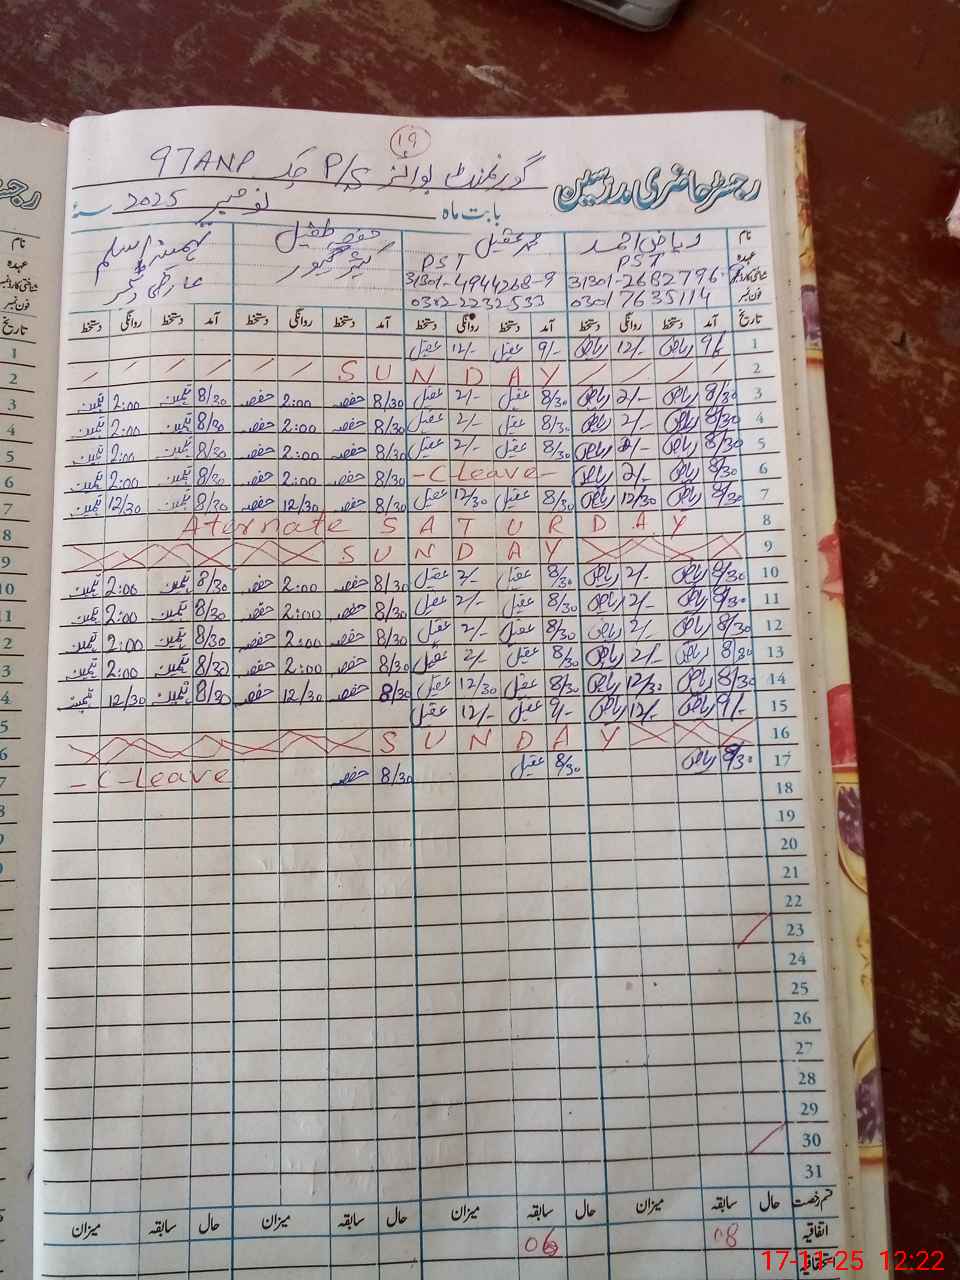 ۱۹
گورنمنٹ بوائز P/S چک 97ANP
رجسٹر حاضری مدرسین
بابت ماہ نومبر 2025 سنہ
نام ریاض احمد محمد عقیل حفصہ طفیل اسلم
عہدہ PST PST کیئر گیور عارضی ٹیچر
شناختی کارڈ نمبر 31301-2682796- 31301-4944268-9
فون نمبر 03017635114 0302-2232533
تاریخ آمد دستخط روانگی دستخط آمد دستخط روانگی دستخط آمد دستخط روانگی دستخط آمد دستخط روانگی دستخط
1 9/- ریاض 12/- ریاض 9/- عقیل 12/- عقیل
2 SUNDAY
3 8/30 ریاض 2/- ریاض 8/30 عقیل 2/- عقیل 8/30 حفصہ 2:00 حفصہ 8/30 2:00
4 8/30 ریاض 2/- ریاض 8/30 عقیل 2/- عقیل 8/30 حفصہ 2:00 حفصہ 8/30 2:00
5 8/30 ریاض 2/- ریاض 8/30 عقیل 2/- عقیل 8/30 حفصہ 2:00 حفصہ 8/30 2:00
6 8/30 ریاض 2/- ریاض -C Leave- 8/30 حفصہ 2:00 حفصہ 8/30 2:00
7 8/30 ریاض 12/30 ریاض 8/30 عقیل 12/30 عقیل 8/30 حفصہ 12/30 حفصہ 8/30 12/30
8 Aternate SATURDAY
9 SUNDAY
10 8/30 ریاض 2/- ریاض 8/30 عقیل 2/- عقیل 8/30 حفصہ 2:00 حفصہ 8/30 2:00
11 8/30 ریاض 2/- ریاض 8/30 عقیل 2/- عقیل 8/30 حفصہ 2:00 حفصہ 8/30 2:00
12 8/30 ریاض 2/- ریاض 8/30 عقیل 2/- عقیل 8/30 حفصہ 2:00 حفصہ 8/30 2:00
13 8/30 ریاض 2/- ریاض 8/30 عقیل 2/- عقیل 8/30 حفصہ 2:00 حفصہ 8/30 2:00
14 8/30 ریاض 12/30 ریاض 8/30 عقیل 12/30 عقیل 8/30 حفصہ 12/30 حفصہ 8/30 12/30
15 9/- ریاض 12/- ریاض 9/- عقیل 12/- عقیل
16 SUNDAY
17 8/30 ریاض 8/30 عقیل 8/30 حفصہ -C-Leave
18
19
20
21
22
23
24
25
26
27
28
29
30
31
قسم رخصت حال سابقہ میزان حال سابقہ میزان حال سابقہ میزان حال سابقہ میزان
اتفاقیہ 08 06
استحقاقیہ
17-11-25 12:22